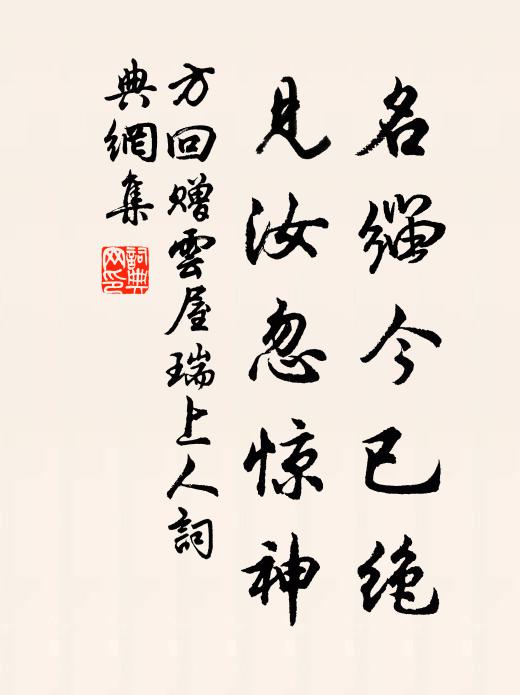 名缁今已绝
见汝忽惊神
方回赠雲屋瑞上人詞
典網集
詞典
网印